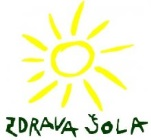 ZDRAVA ŠOLA